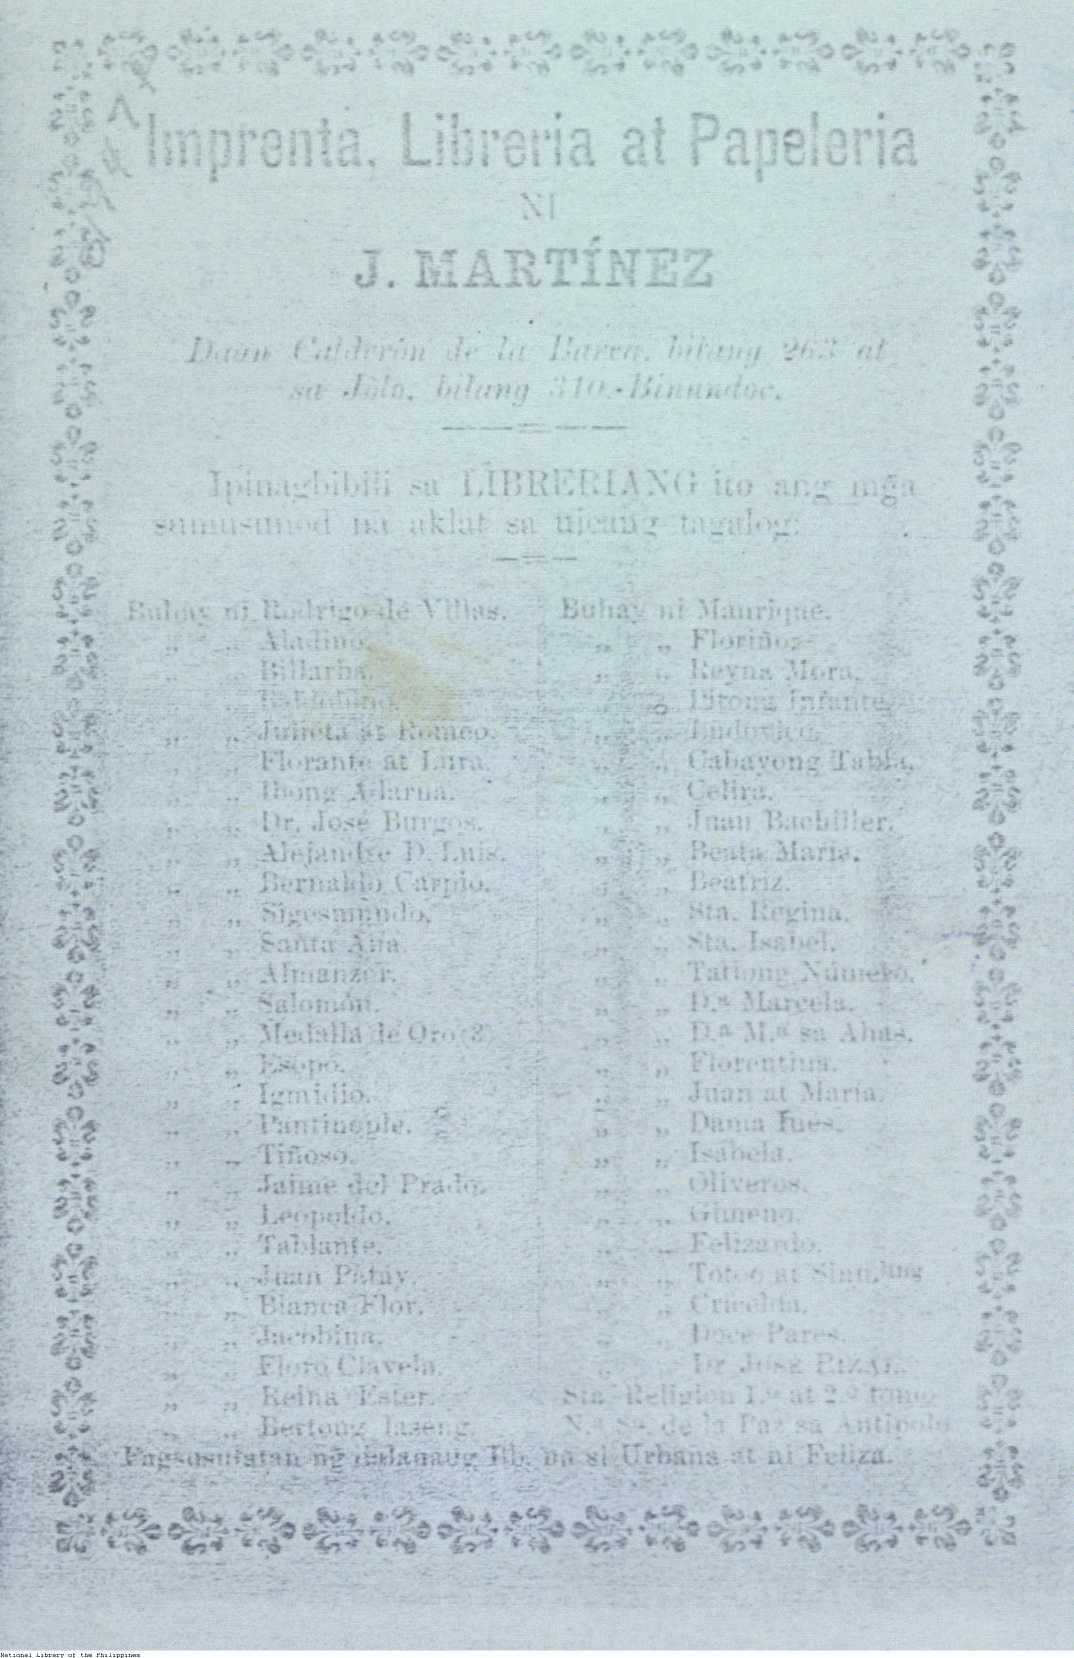 Imprenta, Libreria at Papeleria
NI
J. MARTÍNEZ
Daan Calderón de la Barca, bilang 263 at
sa Jólo, bilang 310.-Binundoc.
Ipinagbibili sa LIBRERIANG ito ang mga
sumusunod na aklat sa uicang tagalog:
Buhay ni Rodrigo de Villas.
„ „ Aladino.
„ „ Billarba.
„ „ Baldobino.
„ „ Julieta at Romeo.
„ „ Florante at Lura.
„ „ Ibong Adarna.
„ „ Dr. José Burgos.
„ „ Alejandre D. Luis.
„ „ Bernaldo Carpio.
„ „ Sigesmundo.
„ „ Santa Ana.
„ „ Almanzor.
„ „ Salomón.
„ „ Medalla de Oro
„ „ Esopo.
„ „ Igmidio.
„ „ Pantinople.
„ „ Tiñoso.
„ „ Jaime del Prado.
„ „ Leopoldo.
„ „ Tablante.
„ „ Juan Patay.
„ „ Bianca Flor.
„ „ Jacobina.
„ „ Floro Clavela.
„ „ Reina Ester.
„ „ Bertong laseng.
Buhay ni Manrique.
„ „ Floriño.
„ „ Reyna Mora.
„ „ Pitong Infante.
„ „ Ludovico.
„ „ Cabayong Tabla.
„ „ Celira.
„ „ Juan Bachiller.
„ „ Beata Maria.
„ „ Beatriz.
„ „ Sta. Regina.
„ „ Sta. Isabel.
„ „ Tatlong Número.
„ „ D.ª Marcela.
„ „ D.ª M.ª sa Ahas.
„ „ Florentina.
„ „ Juan at Maria.
„ „ Dama Inés.
„ „ Isabela.
„ „ Oliveros.
„ „ Gimeno.
„ „ Felizardo.
„ „ Toteo at
„ „ Criselda.
„ „ Doce Pares.
„ „ Dr JOSE RIZAL.
Sta Religion 1.º at 2.º tomo
N.ª Sª. de la Paz sa Antipolo
Pagsusulatan ng dalauang Bb. na si Urbana at ni Feliza.
National Library of the Philippines